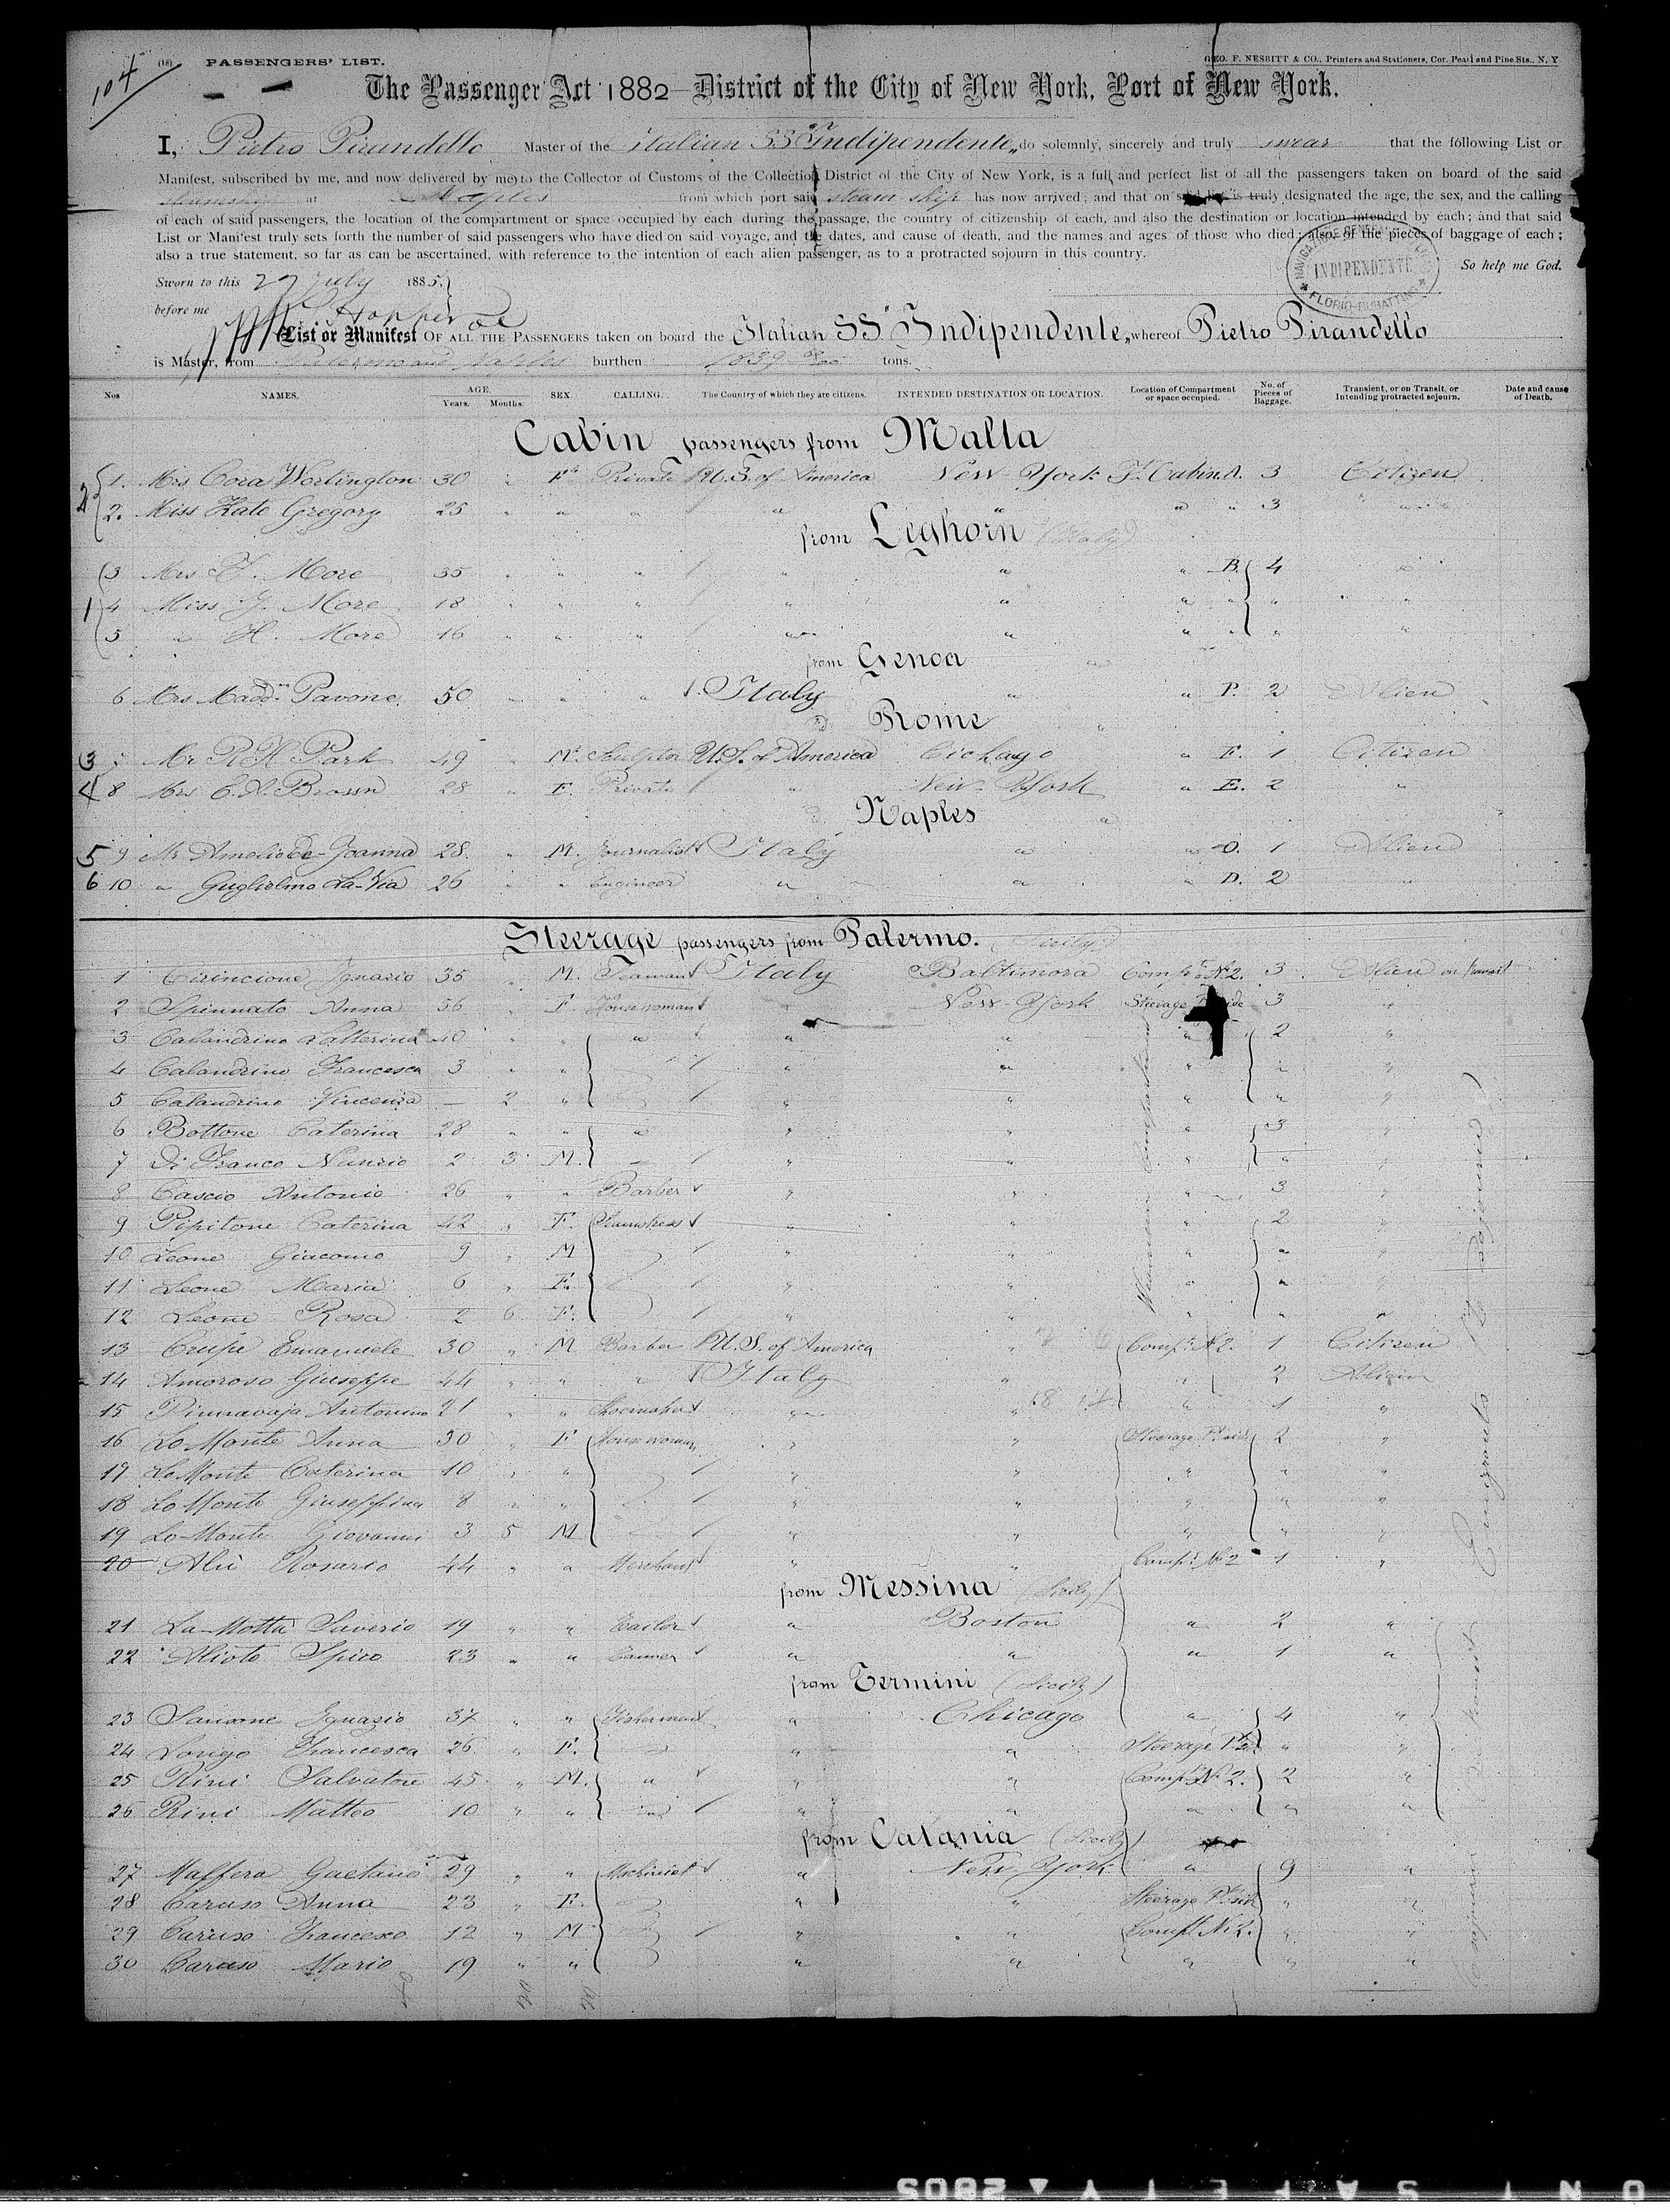 104
(18) PASSENGERS' LIST.
GEO. F. NESBITT & CO., Printers and Stationers, Cor. Pearl and Pine Sts., N. Y
The Passenger Act 1882—District of the City of New York, Port of New York.
I, Pietro Pirandello Master of the italian SS "Indipendente" do solemnly, sincerely and truly swear that the following List or
Manifest, subscribed by me, and now delivered by me to the Collector of Customs of the Collection District of the City of New York, is a full and perfect list of all the passengers taken on board of the said
steamship at Naples from which port said steam ship has now arrived; and that on said list is truly designated the age, the sex, and the calling
of each of said passengers, the location of the compartment or space occupied by each during the passage, the country of citizenship of each, and also the destination or location intended by each; and that said
List or Manifest truly sets forth the number of said passengers who have died on said voyage, and the dates, and cause of death, and the names and ages of those who died; also, of the pieces of baggage of each;
also a true statement, so far as can be ascertained, with reference to the intention of each alien passenger, as to a protracted sojourn in this country.
So help me God.
NAVIGAZIONE GENERALE
INDIPENDENTE
FLORIO-RUBATTINO
Sworn to this 27 July 1885.
before me
List or Manifest OF ALL THE PASSENGERS taken on board the Italian SS "Indipendente" whereof Pietro Pirandello
is Master, from Palermo and Naples burthen 1839 tons.
Nos NAMES. AGE. Years. Months. SEX. CALLING. The Country of which they are citizens. INTENDED DESTINATION OR LOCATION. Location of Compartment or space occupied. No. of Pieces of Baggage. Transient, or on Transit, or Intending protracted sojourn. Date and cause of Death.
Cabin passengers from Malta
2 1. Mrs Cora Wortington 30 " Fe Private U.S. of America New-York Ft Cabin A. 3 Citizen
2. Miss Kate Gregory 25 " " " " " " " 3 "
from Leghorn (Italy)
3 Mrs More 35 " " " " " " B. 4 "
1 4 Miss G. More 18 " " " " " " " " "
5 " H. More 16 " " " " " " " " "
from Genoa
6 Mrs Madda Pavone 50 " " " Italy " " P. 2 Alien
Rome
3 Mr R H Park 49 " M. Sculptor U.S. of America Cichago " F. 1 Citizen
4 8 Mrs C. A. Brown 28 " F. Private " New-York " E. 2 "
Naples
5 9 Mr Amelio De-Joanna 28 " M. Journalist Italy " " O. 1 Alien
6 10 " Guglielmo La-Via 26 " " Engineer " " " D. 2 "
Steerage passengers from Palermo. (Sicily)
1 Cirincione Ignazio 35 " M. Italy Baltimora Compt N2. 3 Alien on transit
2 Spinnato Anna 56 " F. Housewoman " New-York Steerage 3 "
3 Calandrino Catterina 40 " " " " " " 2 "
4 Calandrino Francesca 3 " " " " " " "
5 Calandrino Vincenza — 2 " " " " " "
6 Bottone Caterina 28 " " " " " " 3 "
7 Di Franco Nunzio 2 3 M. " " " " "
8 Cascio Antonio 26 " " Barber " " " 3 "
9 Pipitone Caterina 42 " F. Seamstress " " " 2 "
10 Leone Giacomo 9 " M " " " " "
11 Leone Maria 6 " F. " " " " "
12 Leone Rosa 2 6 F. " " " " "
13 Crupi Emanuele 30 " M Barber U.S. of America " Compt N2. 1 Citizen
14 Amoroso Giuseppe 44 " " " Italy " " 2 Alien
15 Pinnavaja Antonino 21 " " Shoemaker " " " 1 "
16 Lo Monte Anna 30 " F Housewoman " " Steerage Pt side 2 "
17 Lo Monte Caterina 10 " " " " " " "
18 Lo Monte Giuseppina 8 " " " " " " "
19 Lo Monte Giovanni 3 5 M " " " " "
20 Alù Rosario 44 " " Merchant " " Compt No 2 1 "
from Messina (Sicily)
21 La-Motta Saverio 19 " " Tailor " Boston " 2 "
22 Alioto Spico 23 " " Tanner " " " 1 "
from Termini (Sicily)
23 Sansone Ignazio 37 " " Fisherman " Chicago " 4 "
24 Longo Francesca 26 " F. " " Steerage Pt s. " "
25 Rini Salvatore 45 " M. " " " Compt N 2. 2 "
26 Rini Matteo 10 " " " " " " " "
from Catania (Sicily)
27 Maffera Gaetano 29 " " Machinist " New-York " 9 "
28 Caruso Anna 23 " F. " " Steerage Pt side " "
29 Caruso Francesco 12 " M " " Compt N 2. " "
30 Caruso Mario 19 " " " " " " "
SAFETY ▲ 2805